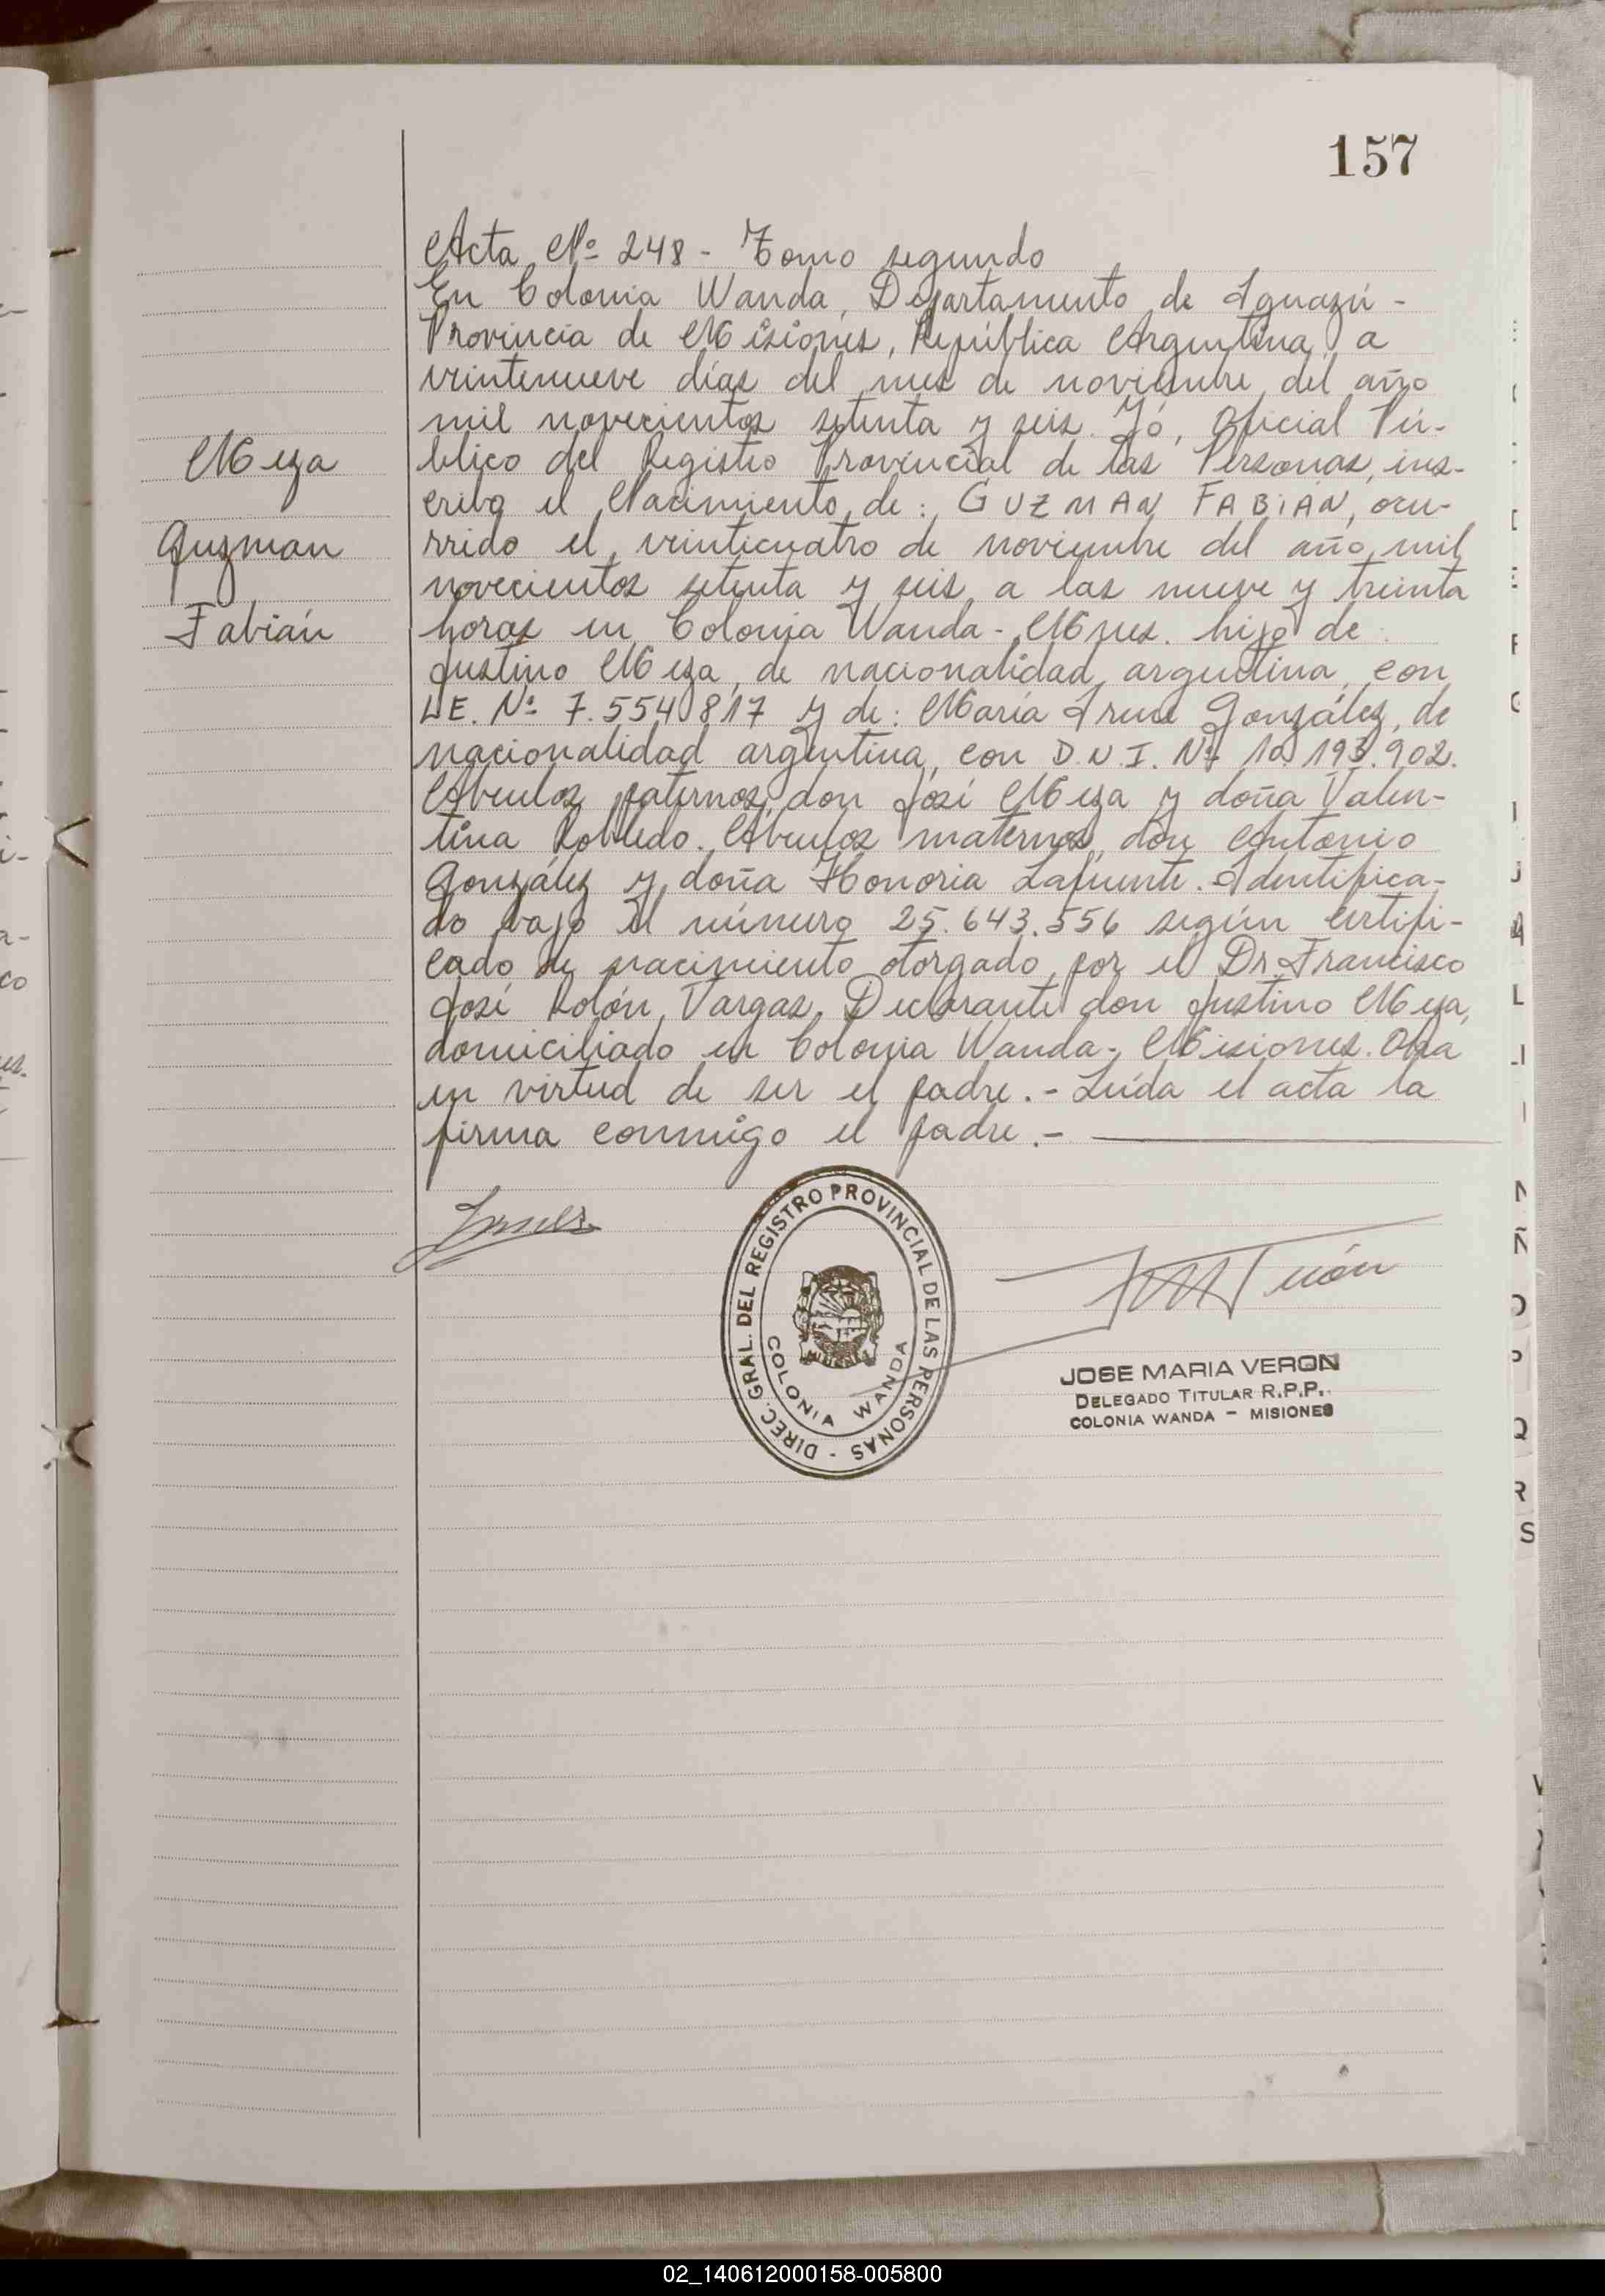 157
Acta Nº 248 - Tomo segundo
En Colonia Wanda, Departamento de Iguazú -
Provincia de Misiones, República Argentina, a
veintenueve días del mes de noviembre del año
mil novecientos setenta y seis. Yó, Oficial Pú-
blico del Registro Provincial de las Personas, ins-
cribo el Nacimiento de: GUZMAN FABIAN, ocu-
rrido el veinticuatro de noviembre del año mil
novecientos setenta y seis a las nueve y treinta
horas en Colonia Wanda - Mnes. hijo de
Justino Meza, de nacionalidad argentina, con
L.E. Nº 7.554.817 y de: María Irene González, de
nacionalidad argentina, con D.N.I. Nº 10.193.902.
Abuelos paternos, don José Meza y doña Valen-
tina Robledo. Abuelos maternos, don Antonio
González y doña Honoria Lafuente. Identifica-
do bajo el número 25.643.556 según certifi-
cado de nacimiento otorgado por el Dr. Francisco
José Rolón Vargas. Declarante don Justino Meza,
domiciliado en Colonia Wanda - Misiones. Obra
en virtud de ser el padre. - Leída el acta la
firma conmigo el padre. -
Meza
Guzman
Fabián
DIREC. GRAL. DEL REGISTRO PROVINCIAL DE LAS PERSONAS -
COLONIA WANDA
JOSE MARIA VERON
DELEGADO TITULAR R.P.P.
COLONIA WANDA - MISIONES
02_140612000158-005800